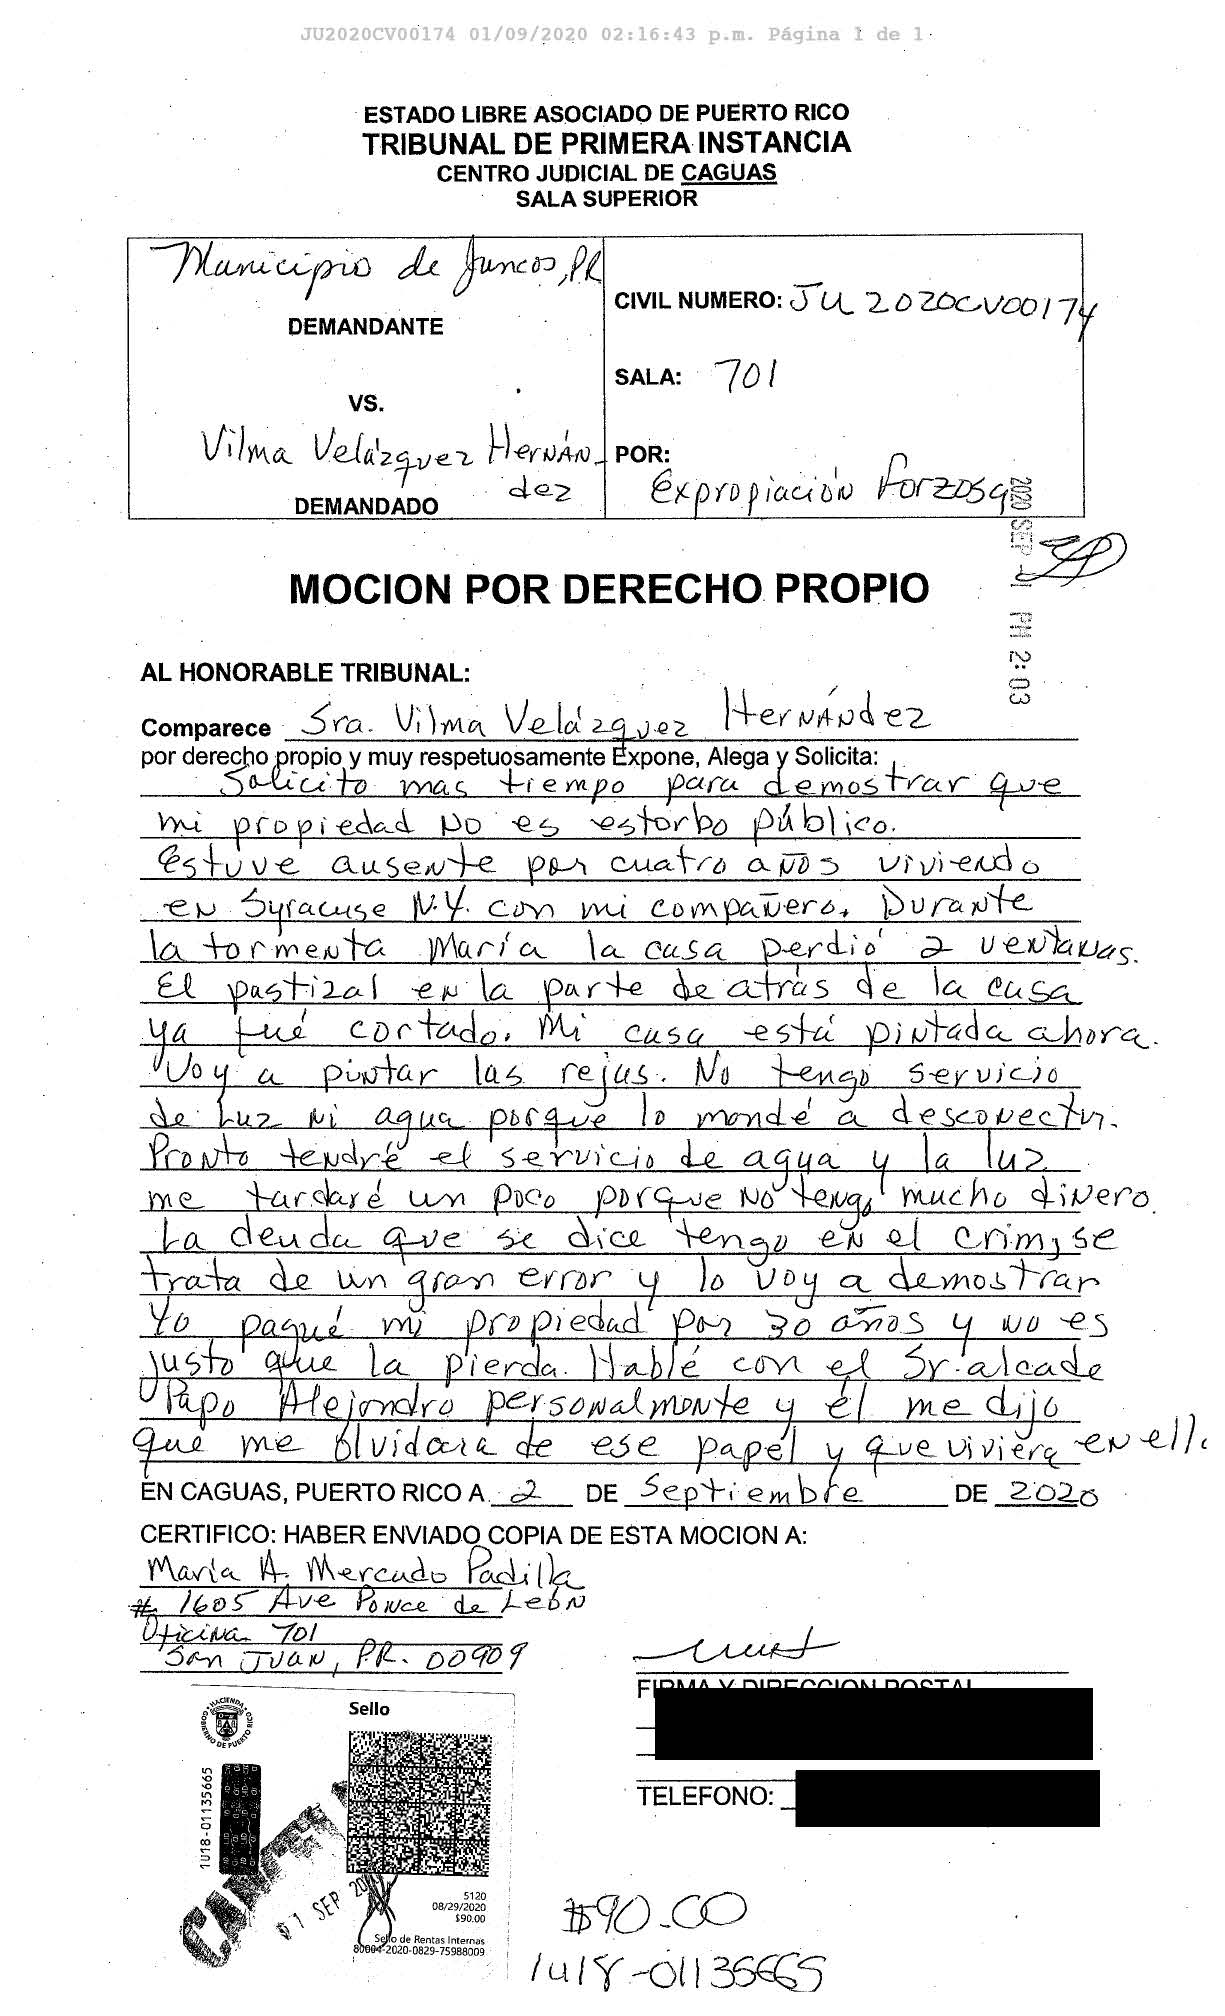 JU2020CV00174 01/09/2020 02:16:43 p.m. Página 1 de 1
ESTADO LIBRE ASOCIADO DE PUERTO RICO
TRIBUNAL DE PRIMERA INSTANCIA
CENTRO JUDICIAL DE CAGUAS
SALA SUPERIOR
Municipio de Juncos, PR
DEMANDANTE
VS.
Vilma Velázquez Hernán-
dez
DEMANDADO
CIVIL NUMERO: JU 2020CV00174
SALA: 701
POR:
Expropiación Forzosa
2020 SEP -1 PM 2:03
MOCION POR DERECHO PROPIO
AL HONORABLE TRIBUNAL:
Comparece Sra. Vilma Velázquez Hernández
por derecho propio y muy respetuosamente Expone, Alega y Solicita:
Solicito mas tiempo para demostrar que
mi propiedad no es estorbo público.
Estuve ausente por cuatro años viviendo
en Syracuse N.Y. con mi compañero. Durante
la tormenta María la casa perdió 2 ventanas.
El pastizal en la parte de atrás de la casa
ya fué cortado. Mi casa está pintada ahora.
Voy a pintar las rejas. No tengo servicio
de Luz ni agua porque lo mandé a desconectar.
Pronto tendré el servicio de agua y la luz
me tardaré un poco porque no tengo mucho dinero.
La deuda que se dice tengo en el crim, se
trata de un gran error y lo voy a demostrar
Yo pagué mi propiedad por 30 años y no es
justo que la pierda. Hablé con el Sr. alcade
Papo Alejandro personalmente y él me dijo
que me olvidara de ese papel y que viviera en ella
EN CAGUAS, PUERTO RICO A 2 DE Septiembre DE 2020
CERTIFICO: HABER ENVIADO COPIA DE ESTA MOCION A:
María A. Mercado Padilla
# 1605 Ave Ponce de León
Oficina 701
San Juan, P.R. 00909
FIRMA Y DIRECCION POSTAL
TELEFONO:
HACIENDA
GOBIERNO DE PUERTO RICO
Sello
1U18-01135665
01 SEP
5120
08/29/2020
$90.00
Sello de Rentas Internas
80004-2020-0829-75988009
$90.00
1U18-01135665